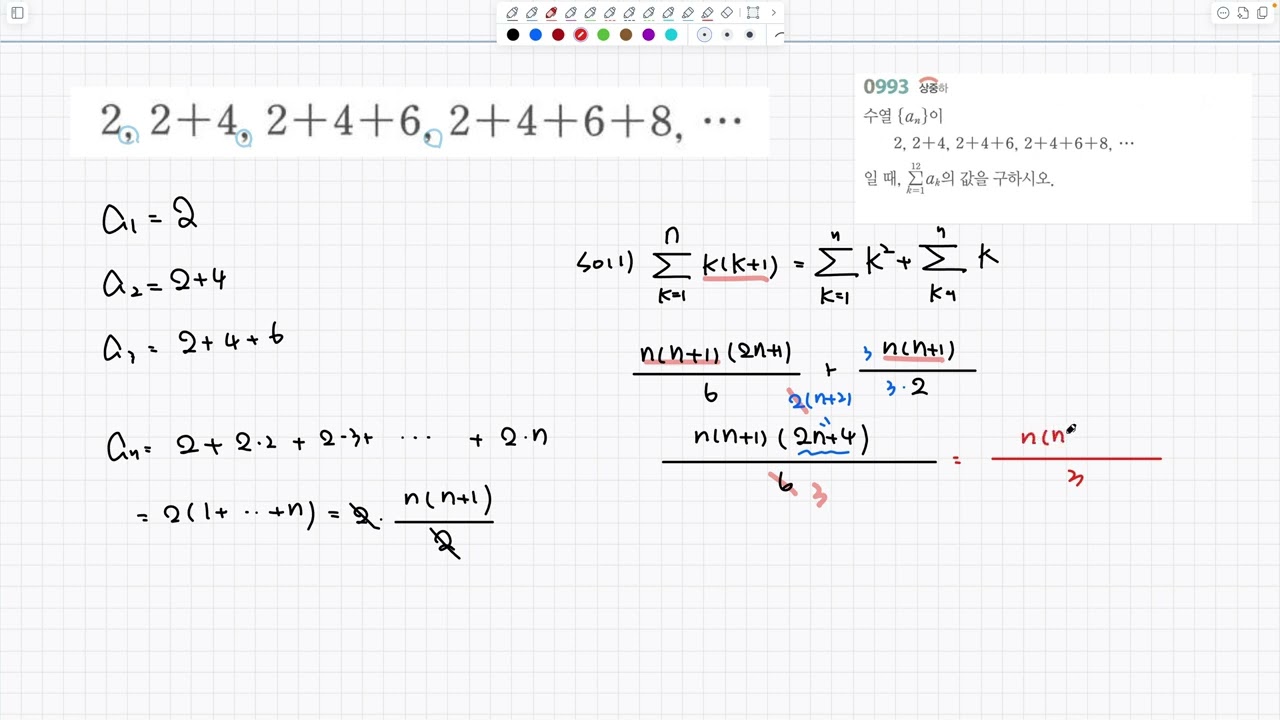 2, 2+4, 2+4+6, 2+4+6+8, ⋯
0993 상중하
수열 {aₙ}이
2, 2+4, 2+4+6, 2+4+6+8, ⋯
일 때, ∑_{k=1}^{12} aₖ의 값을 구하시오.
a₁ = 2
a₂ = 2+4
a₃ = 2+4+6
aₙ = 2 + 2·2 + 2·3+ ⋯ + 2·n
= 2(1+ ⋯ +n) = 2 · n(n+1)/2
sol1) ∑_{k=1}^{n} k(k+1) = ∑_{k=1}^{n} k² + ∑_{k=1}^{n} k
n(n+1)(2n+1)/6 + 3 n(n+1)/3·2
2(n+2)
n(n+1)(2n+4)/6 3 = n(n/3